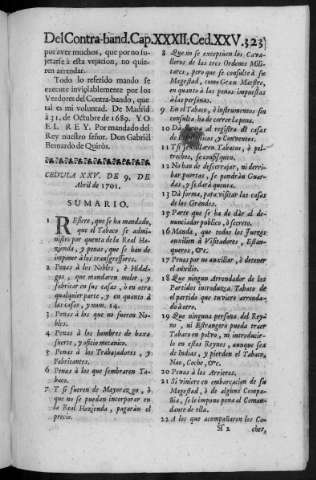 Del Contra-band. Cap. XXXII. Ced. XXV. 323
por aver muchos, que por no su-
jetarse à esta vejacion, no quie-
ren arrendar.
Todo lo referido mando se
execute inviolablemente por los
Veedores del Contra-bando, que
tal es mi voluntad. De Madrid
à 31. de Octubre de 1689. YO
EL REY. Por mandado del
Rey nuestro señor. Don Gabriel
Bernardo de Quiròs.
CEDULA XXV. DE 9. DE
Abril de 1701.
SUMARIO.
1 Refiere, que se ha mandado,
que el Tabaco se admi-
nistre por quenta de la Real Ha-
zienda, y penas, que se han de
imponer à los transgressores.
2 Penas à los Nobles, y Hidal-
gos, que mandaren moler, y
fabricar en sus casas, ò en otra
qualquier parte, y en quanto à
las casas, y num. 14.
3 Penas à los que no fueren No-
bles.
4 Penas à los hombres de baxa
suerte, y oficio mecanico.
5 Penas à los Trabajadores, y
Fabricantes.
6 Penas à los que sembraren Ta-
baco.
7 Y si fueren de Mayorazgo, ò
que no se puedan incorporar en
la Real Hazienda, pagaràn el
precio.
8 Que no se exceptúen los Cava-
lleros de las tres Ordenes Mili-
tares, pero que se consulte à su
Magestad, como Gran Maestre,
en quanto à las penas impuestas
à las personas.
9 En el Tabaco, è instrumentos sin
consulta, ha de correr la pena.
10 Dà forma al registro de casas
de Eclesiasticos, y Conventos.
11 Y si se hallaren Tabacos, ò pel-
trechos, se consfisquen.
12 No han de descerrajar, ni derri-
bar puertas, se pondràn Guar-
das, y se darà quenta.
13 Dà forma, para visitar las casas
de los Grandes.
15 Parte que se ha de dàr al de-
nunciador publico, ò secreto.
16 Manda, que todos los Juezes
auxilien à Visitadores, Estan-
queros, &c.
17 Penas por no auxiliar, ò detener
el auxilio.
18 Que ningun Arrendador de los
Partidos introduzca Tabaco de
el partido que tuviere arrenda-
do à otro.
19 Que ninguna persona del Rey-
no, ni Estrangero pueda traer
Tabaco en polvo, ni introducir-
le en estos Reynos, aunque sea
de Indias, y pierden el Tabaco,
Nao, Coche, &c.
20 Penas à los Arrieros.
21 Si viniere en embarcacion de su
Magestad, ò de alguna Compa-
ñia, se le impone pena al Coman-
dante de ella.
22 A los que acompañaren los Co-
Sf 2 ches,